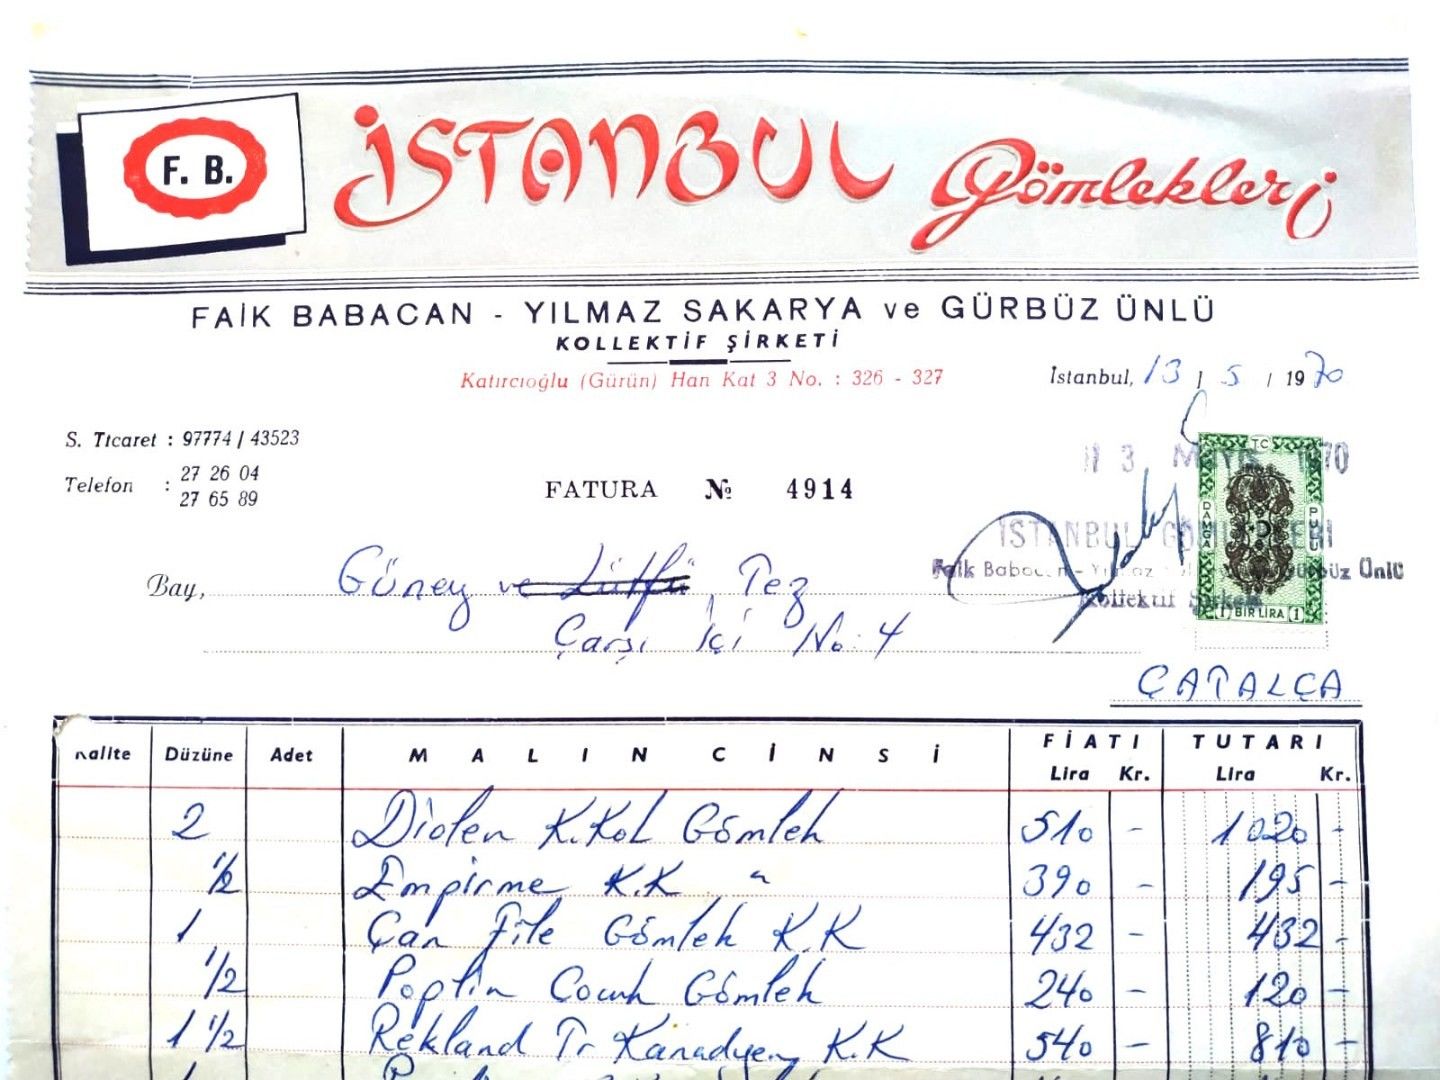 F. B.
İSTANBUL Gömlekleri
FAİK BABACAN - YILMAZ SAKARYA ve GÜRBÜZ ÜNLÜ
KOLLEKTİF ŞİRKETİ
Katırcıoğlu (Gürün) Han Kat 3 No. : 326 - 327
İstanbul, 13 / 5 / 1970
S. Ticaret : 97774 / 43523
Telefon : 27 26 04
27 65 89
FATURA № 4914
13 MAYIS 1970
İSTANBUL GÖMLEKLERİ
Faik Babacan - Yılmaz Sakarya ve Gürbüz Ünlü
Kollektif Şirketi
TC
DAMGA PULU
1 BİR LİRA 1
Bay, Güney ve Lütfü Tez
Çarşı İçi No: 4
ÇATALCA
Kalite Düzüne Adet MALIN CİNSİ FİATI TUTARI
Lira Kr. Lira Kr.
2 Diolen K.Kol Gömlek 510 - 1020 -
1/2 Empirme K.K " 390 - 195 -
1 Çan File Gömlek K.K 432 - 432 -
1/2 Poplin Çocuk Gömlek 240 - 120 -
1 1/2 Rekland Tr Kanadyen K.K 540 - 810 -